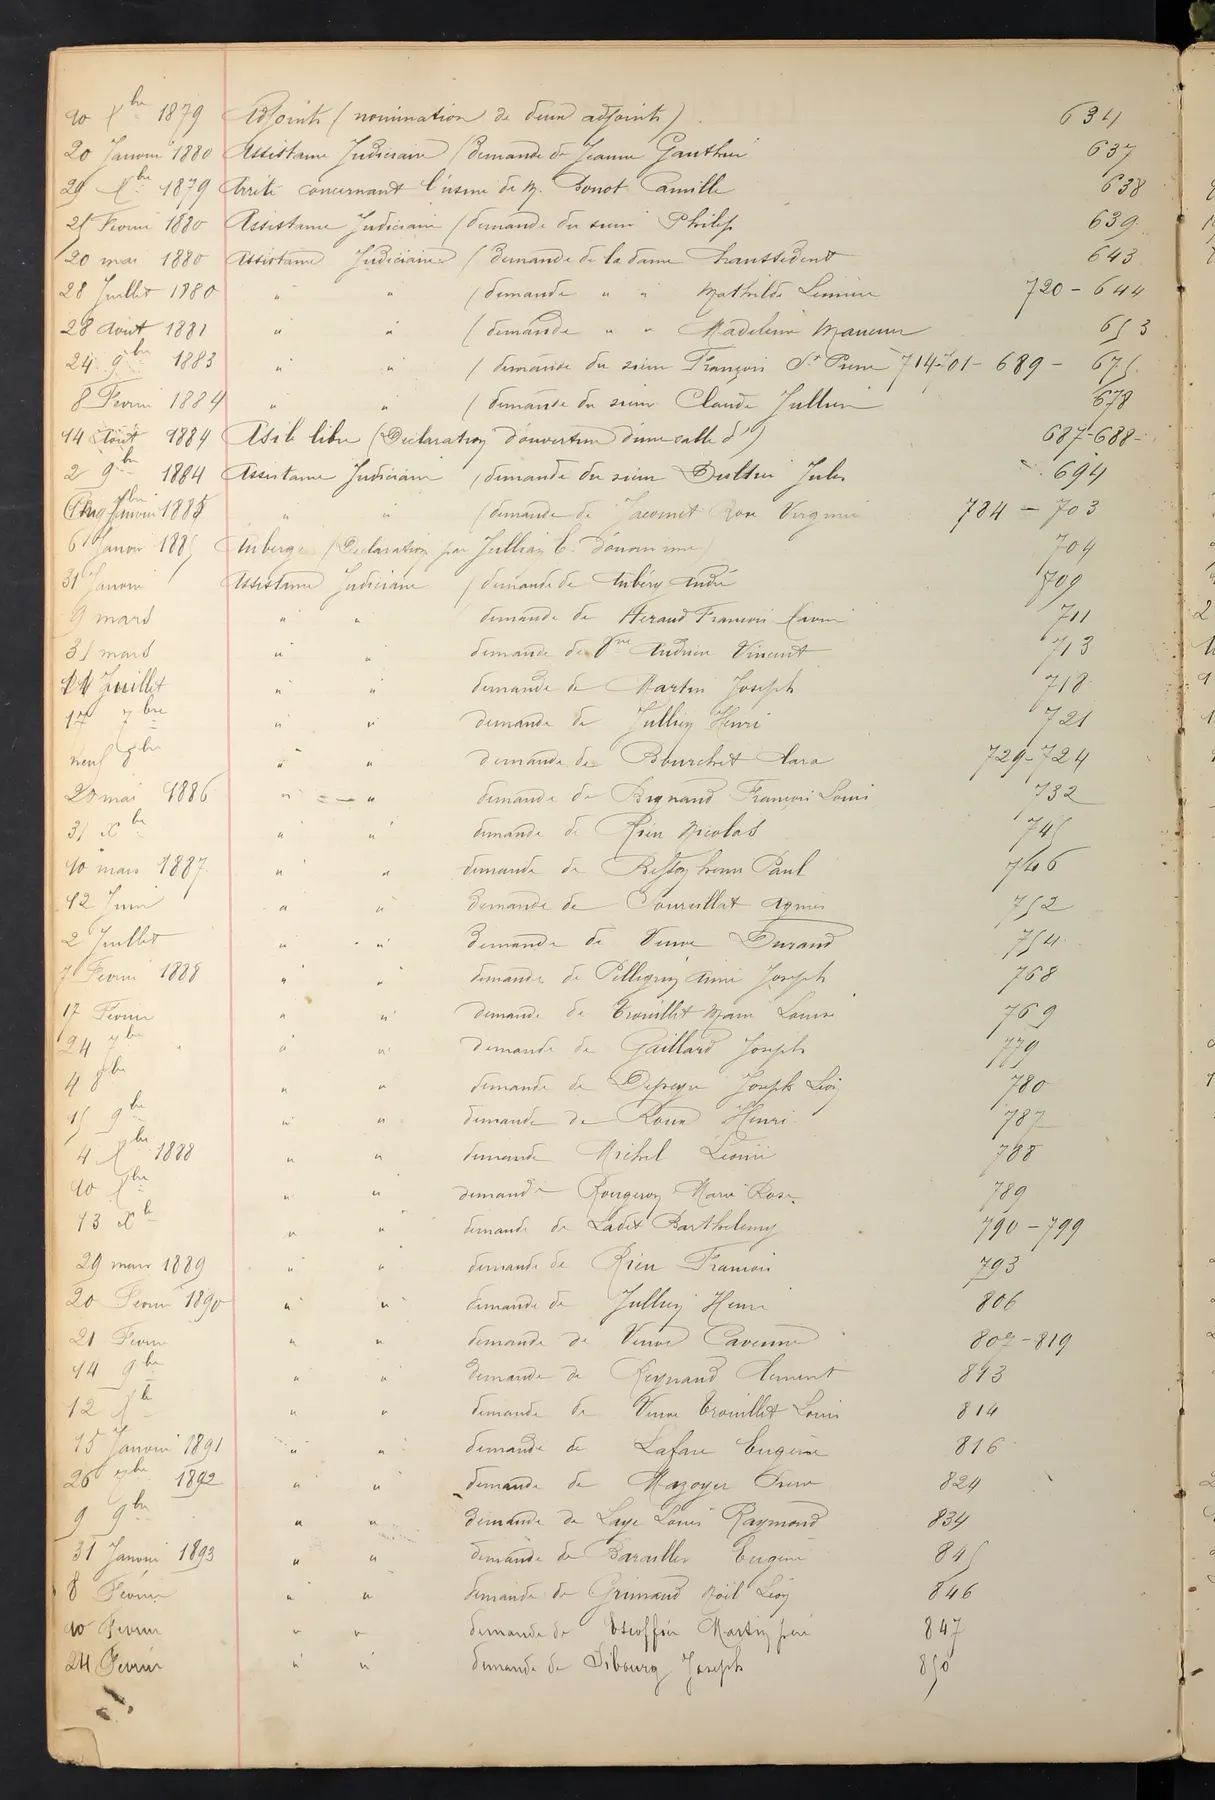 10 Xbre 1879 Adjoints (nomination de deux adjoints) 634
20 Janvier 1880 Assistance Judiciaire (Demande de Jeanne Gauthier 637
29 Xbre 1879 Arrêté concernant l'usine de M. Bonot Camille 638
21 Février 1880 Assistance Judiciaire (demande du sieur Philip 639
20 mai 1880 Assistance Judiciaire (Demande de la dame 643
28 Juillet 1880 " " (demande " " Mathilde 720 - 644
28 Août 1881 " " (demande " " Madeleine 653
24 9bre 1883 " " (demande du sieur François St Pierre 714-701 - 689 - 675
8 Février 1884 " " (demande du sieur Claude Jullien 678
14 Août 1884 Asile libre (Déclaration d'ouverture d'une salle d') 687-688-
2 9bre 1884 Assistance Judiciaire (demande du sieur Jules 694
1885 " " (demande de Jacomet Rose Virginie 784 - 703
6 Janvier 1885 Auberge (Déclaration par Jullian E. d'ouvrir une) 704
31 Janvier Assistance Judiciaire (demande de Aubéry André 709
9 mars " " demande de Heraud François 711
31 mars " " demande de Vve Audrien Vincent 713
11 Juillet " " demande de Martin Joseph 718
17 7bre " " demande de Jullien Henri 721
neuf 9bre " " demande de Bourchet Clara 729-724
20 mai 1886 " " demande de Reynaud François Louis 732
31 Xbre " " demande de Rieu Nicolas 745
10 mars 1887 " " demande de Paul 746
12 Juin " " Demande de Agnès 752
2 Juillet " " Demande de Veuve Durand 754
7 Février 1888 " " demande de Pellegrin Aimé Joseph 768
17 Février " " Demande de Trouillet Marie Louise 769
24 7bre " " Demande de Gaillard Joseph 779
4 8bre " " demande de Joseph Léon 780
15 9bre " " Demande de Roux Henri 787
4 Xbre 1888 " " demande Michel Léonie 788
10 Xbre " " demande Rougeron Marie Rose 789
13 Xbre " demande de Ladet Barthelemy 790 - 799
29 mars 1889 " " demande de Rieu François 793
20 Février 1890 " " demande de Jullien Henri 806
21 Février " " demande de Veuve Cavenne 807-819
14 9bre " " Demande de Reynaud Clement 813
12 Xbre " " demande de Veuve Trouillet Louis 814
15 Janvier 1891 " " demande de Lafare Eugène 816
26 7bre 1892 " " demande de Mazoyer 824
9 9bre " " demande de Laye Louis Raymond 834
31 Janvier 1893 " " demande de Barailler Eugène 845
8 Février " " demande de Grimaud Noël Léon 846
10 Février " " demande de Escoffier Martin père 847
24 Février " " demande de Dibourg Joseph 850